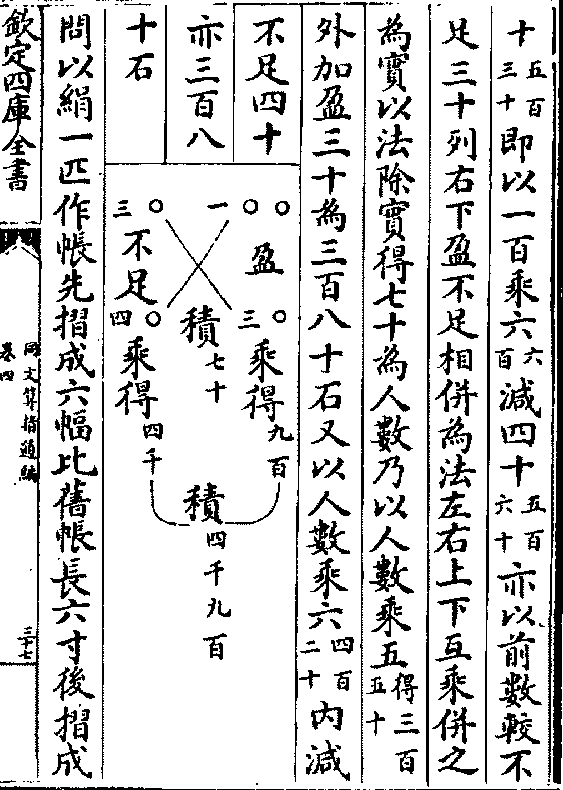 十五百三十即以一百乘六六百減四十五百六十亦以前數較不
足三十列右下盈不足相併為法左右上下互乘併之
為實以法除實得七十為人數乃以人數乘五得三百五十
外加盈三十為三百八十石又以人數乘六四百二十內減
不足四十
亦三百八
十石
一〇〇 盈 三〇 乘得九百
積七十 積四千九百
三〇 不足 四〇 乘得四千
問以絹一匹作帳先摺成六幅比舊帳長六寸後摺成
欽定四庫全書
同文算指通編
卷四
三十七